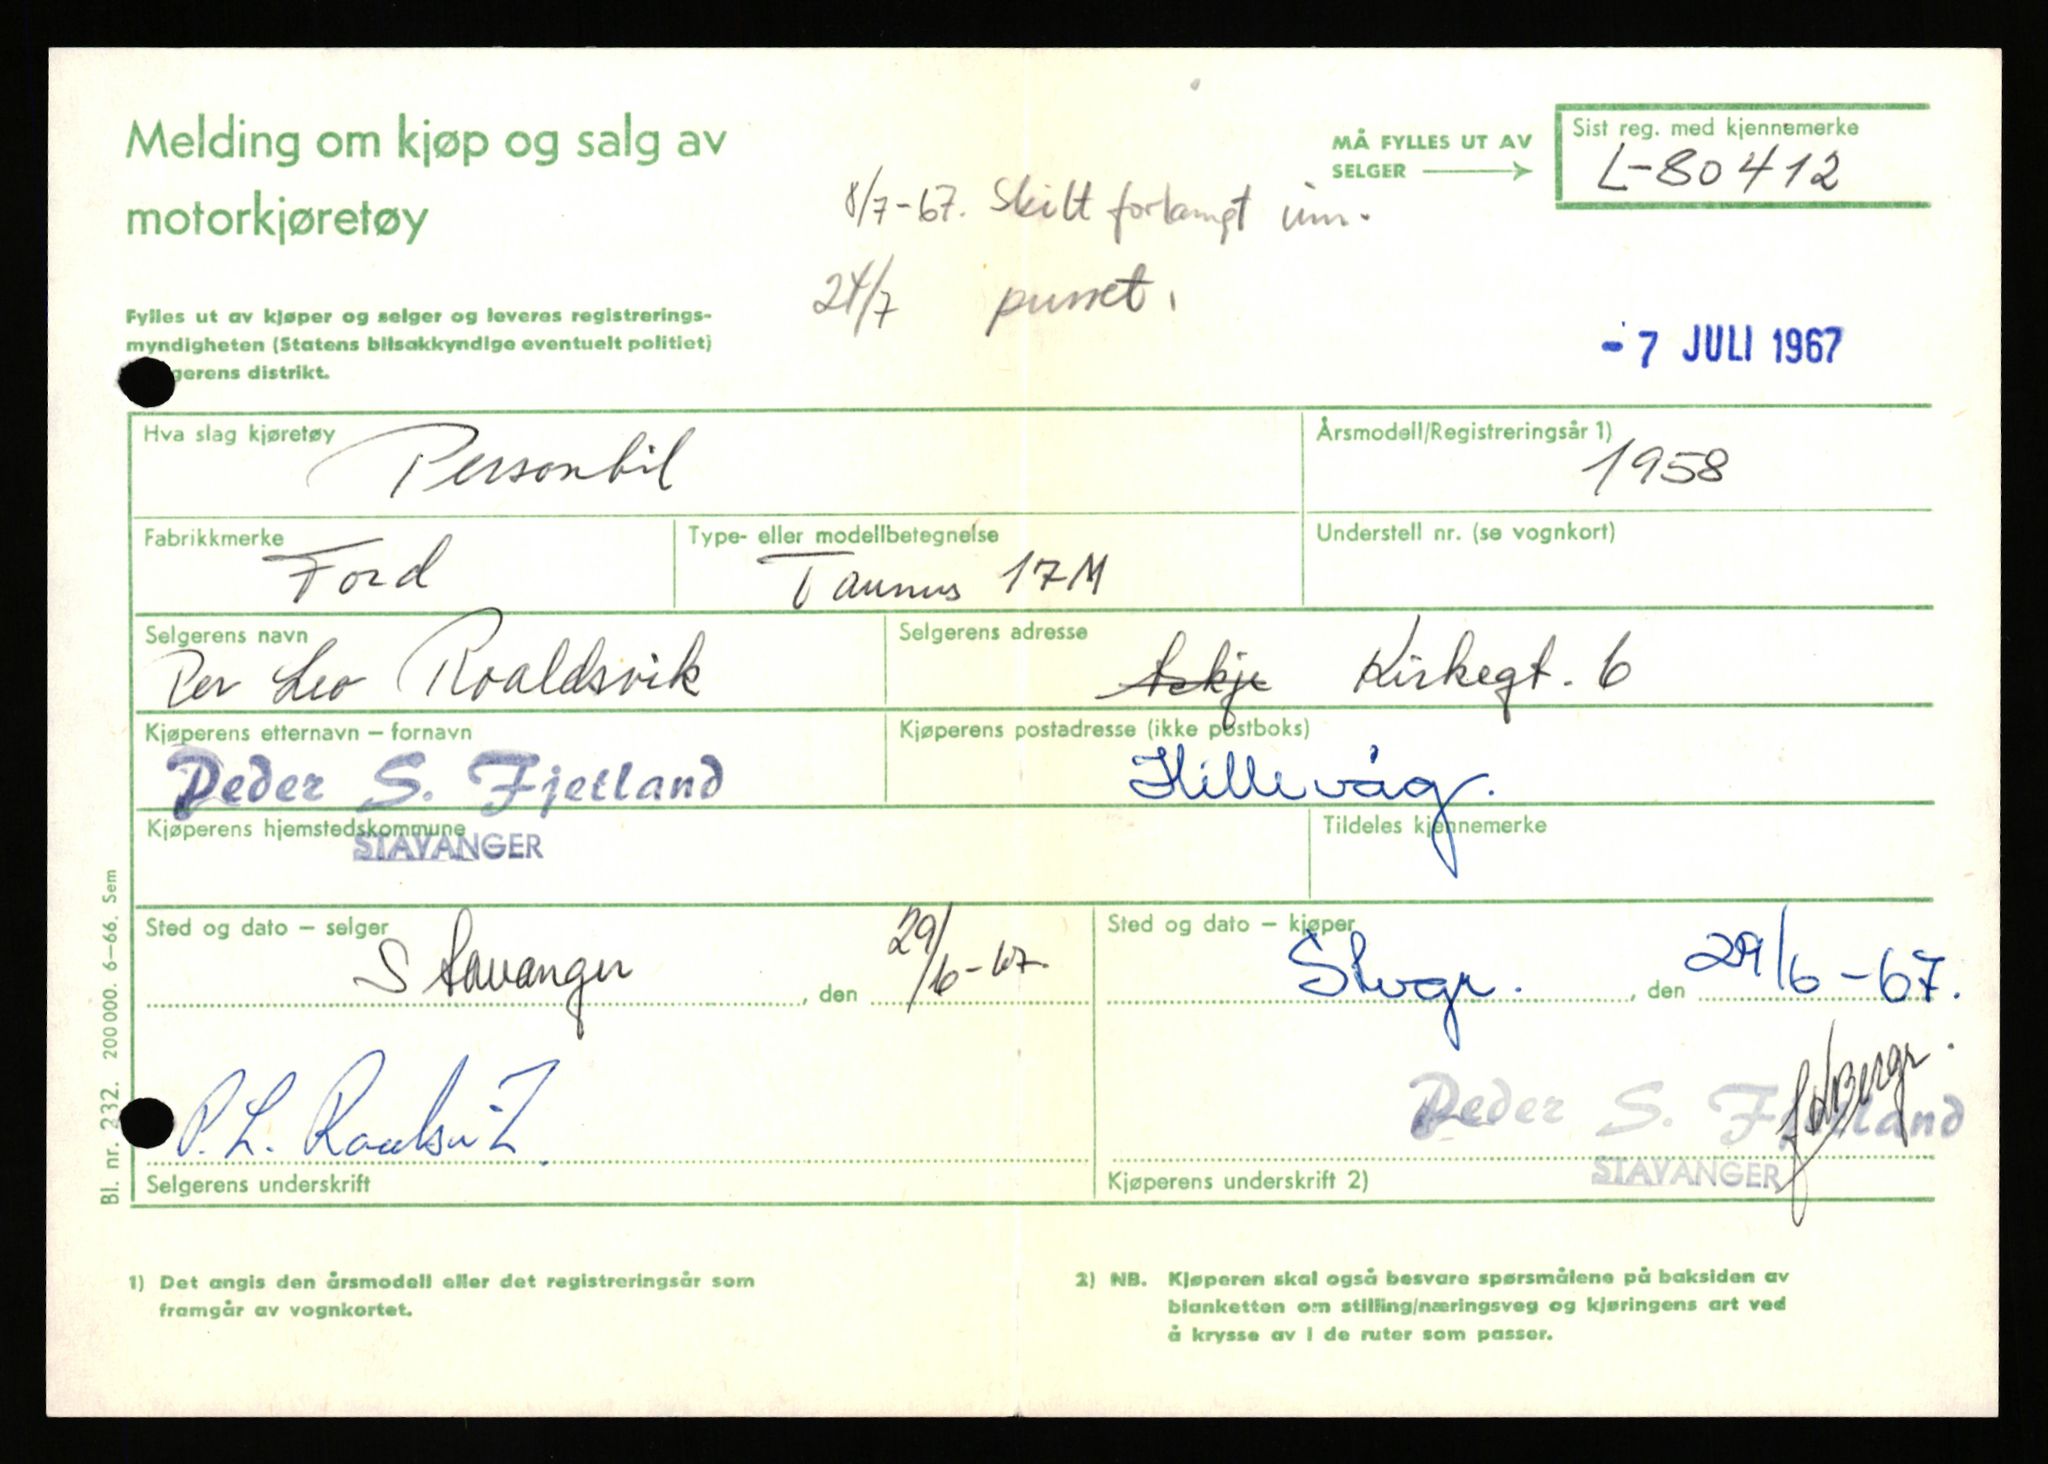 Melding om kjøp og salg av
motorkjøretøy
MÅ FYLLES UT AV
SELGER
Sist reg. med kjennemerke
L-80412
8/7-67. Skilt forlangt inn.
24/7 purret.
Fylles ut av kjøper og selger og leveres registrerings-
myndigheten (Statens bilsakkyndige eventuelt politiet)
gerens distrikt.
- 7 JULI 1967
Hva slag kjøretøy
Personbil
Årsmodell/Registreringsår 1)
1958
Fabrikkmerke
Ford
Type- eller modellbetegnelse
Taunus 17M
Understell nr. (se vognkort)
Selgerens navn
Per Leo Roaldsvik
Selgerens adresse
Kirkegt. 6
Kjøperens etternavn – fornavn
Peder S. Fjetland
Kjøperens postadresse (ikke postboks)
Hillevåg.
Kjøperens hjemstedskommune
STAVANGER
Tildeles kjennemerke
Sted og dato – selger
Stavanger , den 29/6-67.
Sted og dato – kjøper
Stvgr. , den 29/6-67.
P. L. Roaldsvik
Selgerens underskrift
Peder S. Fjetland
STAVANGER
Kjøperens underskrift 2)
Bl. nr. 232. 200 000. 6–66. Sem
1) Det angis den årsmodell eller det registreringsår som
framgår av vognkortet.
2) NB. Kjøperen skal også besvare spørsmålene på baksiden av
blanketten om stilling/næringsveg og kjøringens art ved
å krysse av i de ruter som passer.